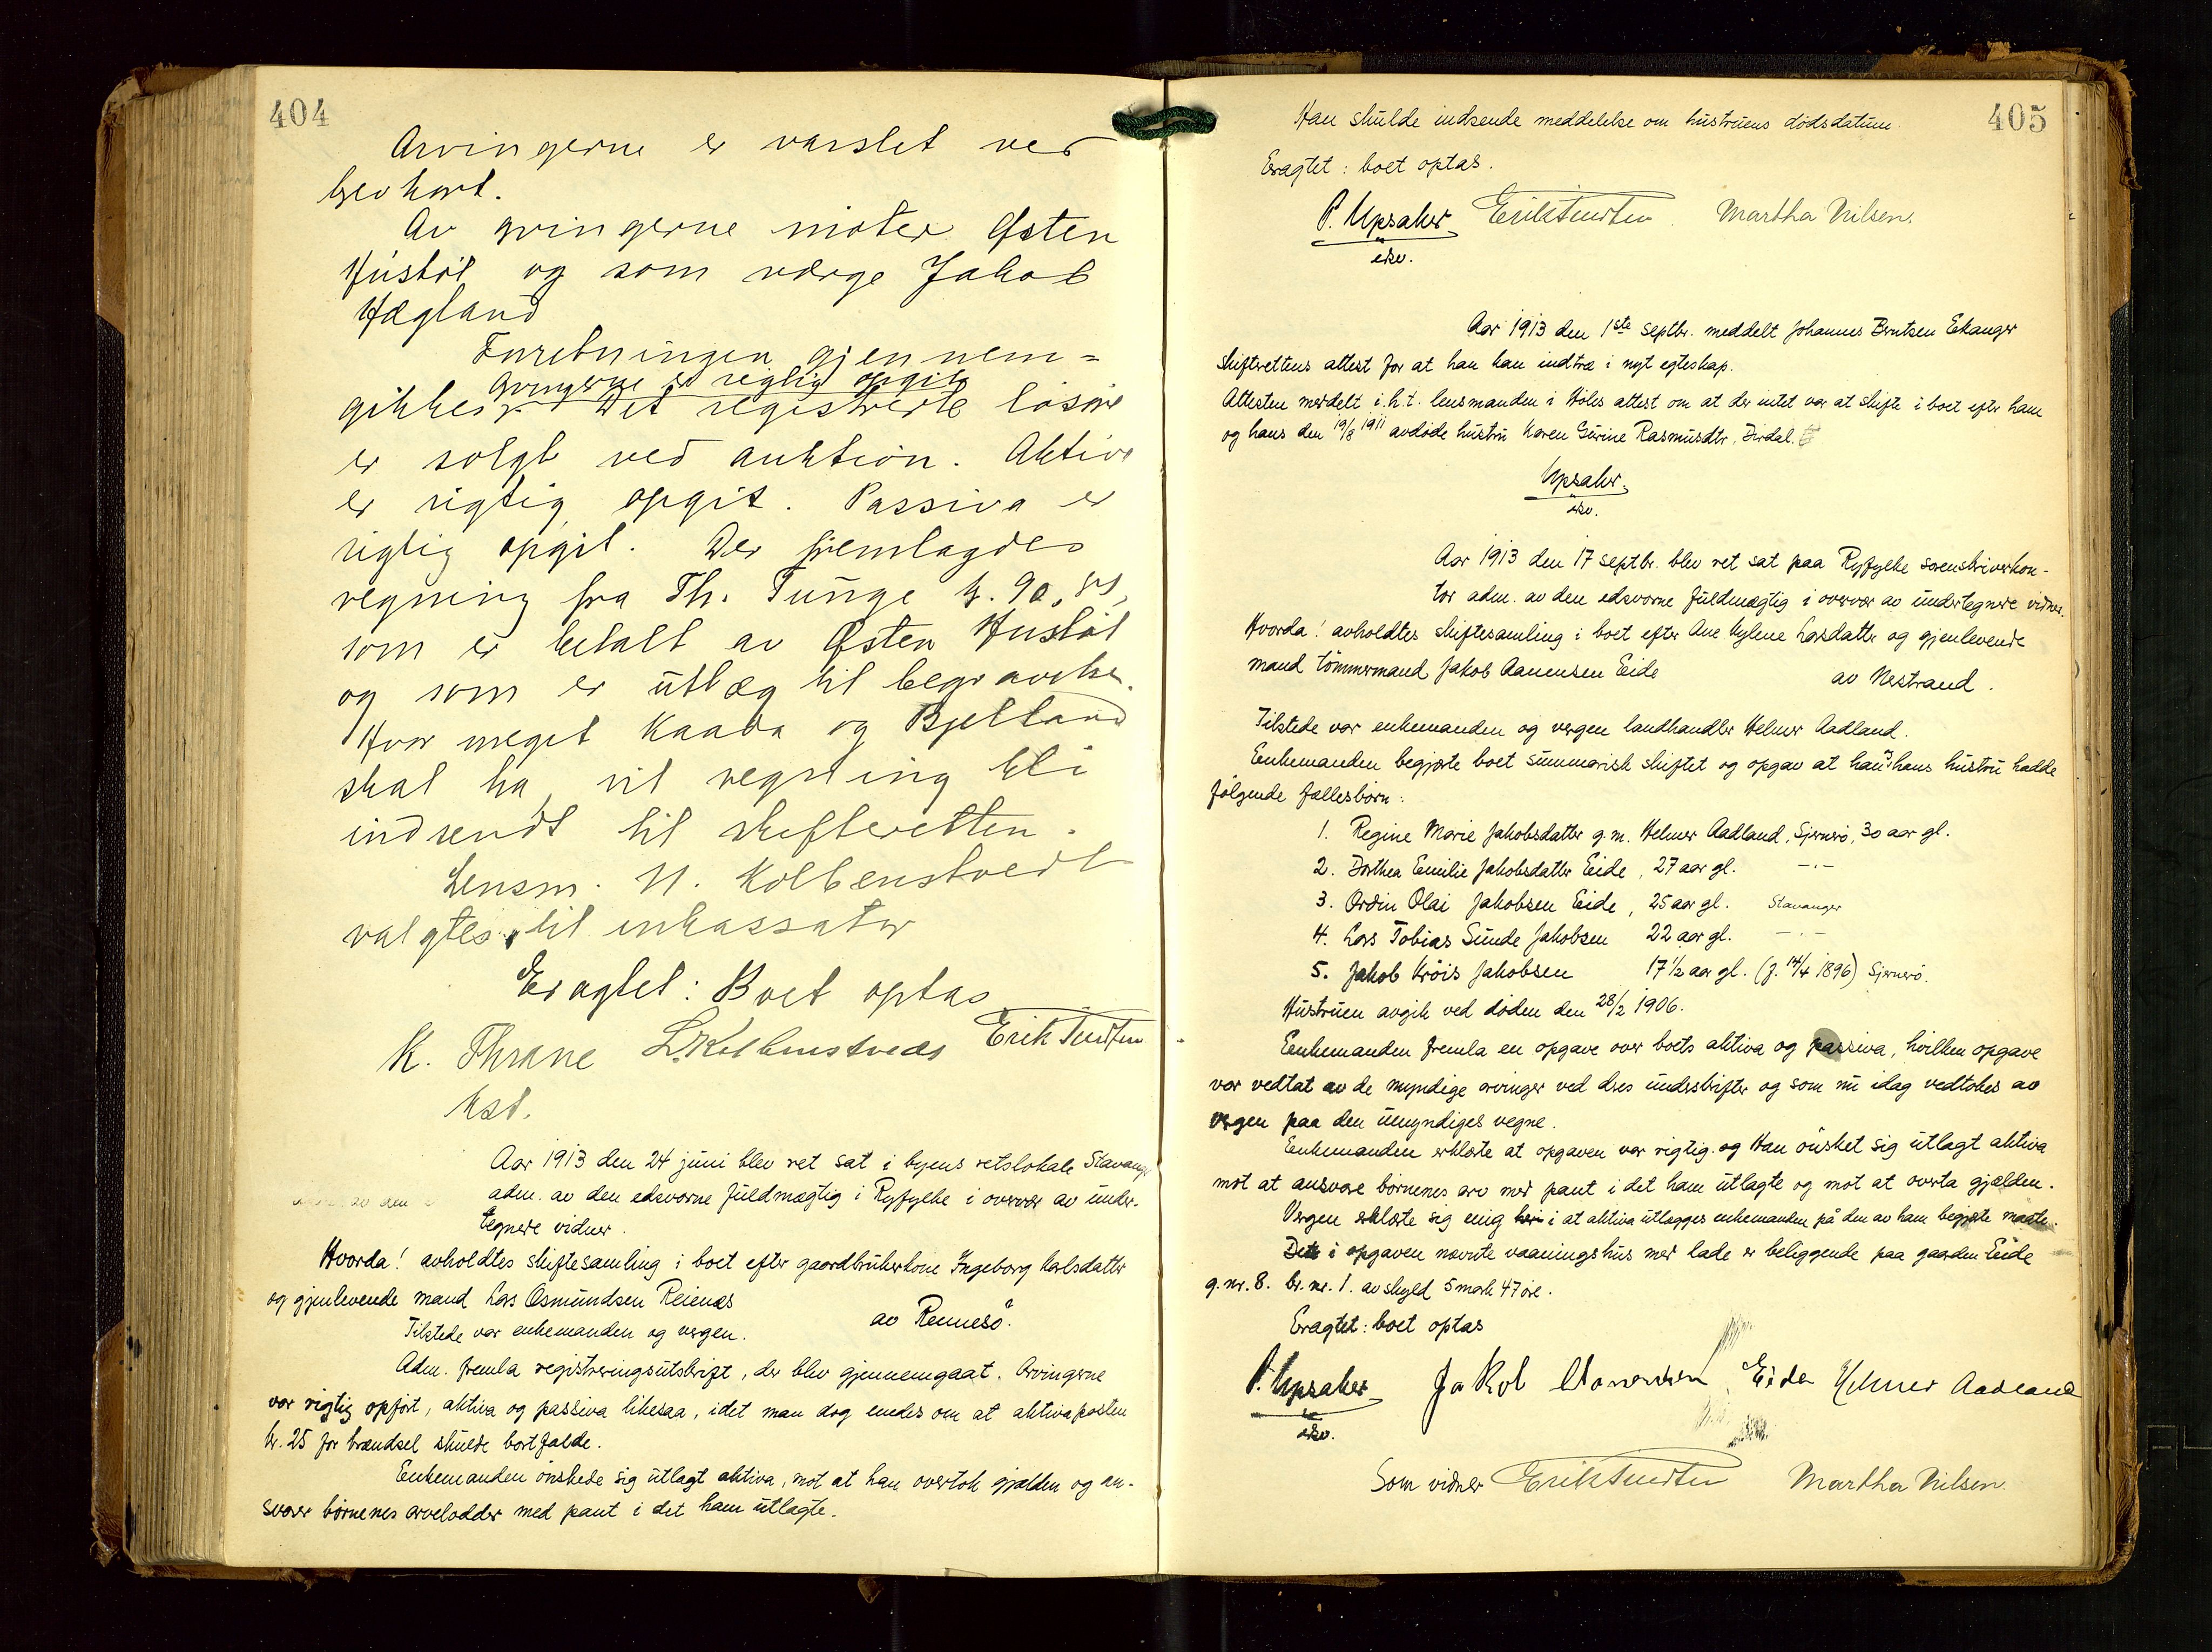 404
Arvingerne er varslet ved
brevkort.
Av arvingerne möter Østen
Hustöl og som værge Jakob
Hægland
Forretningen gjennem-
Arvingerne er rigtig opgit
gikkes. Det registrerte lösöre
er solgt ved auktion. Aktiva
er rigtig opgit. Passiva er
rigtig opgit. Der fremlagdes
regning fra Th. Tunge
som er betalt av Østen Hustöl
og som er utlæg til begravelse.
Hvor meget Kaada og Bjelland
skal ha, vil regning bli
indsendt til skifteretten.
Lensm. N. Kolbenstvedt
valgtes til inkassator
Eragtet: Boet optas
K. Thrane L. Kolbenstvedt Erik Tendten
kst.
Aar 1913 den 24 juni blev ret sat i byens retslokale Stavanger
adm. av den edsvorne fuldmægtig i Ryfylke i overvær av under-
tegnede vidner.
Hvorda! avholdtes skiftesamling i boet efter gaardbrukerkone Ingeborg Karlsdatter
og gjenlevende mand Lars Osmundsen Reienæs
av Rennesö.
Tilstede var enkemanden og vergen.
Adm. fremla registreringsutskrift, der blev gjennemgaat. Arvingerne
var rigtig opfört, aktiva og passiva likesaa, idet man dog enedes om at aktivaposten
kr. 25 for brændsel skulde bortfalde.
Enkemanden önskede sig utlagt aktiva, mot at han overtok gjælden og an-
svarer börnenes arvelodder med pant i det ham utlagte.
405
Han skulde indsende meddelelse om hustruens dödsdatum.
Eragtet: boet optas.
P. Upsaker Erik Tendten Martha Nilsen.
edsv.
Aar 1913 den 1ste septbr. meddelt Johannes Berntsen Eikanger
skifterettens attest for at han kan indtræ i nyt egteskap.
Attesten meddelt i.h.t. lensmanden i Höles attest om at der intet var at skifte i boet efter ham
og hans den 19/8 1911 avdöde hustru Karen Gurine Rasmusdtr. Dirdal.
Upsaker.
edsv.
Aar 1913 den 17 septbr. blev ret sat paa Ryfylke sorenskriverkon-
tor adm. av den edsvorne fuldmægtig i overvær av undertegnede vidner.
Hvorda! avholdtes skiftesamling i boet efter Ane Kylene Larsdatter og gjenlevende
mand tömmermand Jakob Aanensen Eide av Nestrand.
Tilstede var enkemanden og vergen landhandler Helmer Aadland.
Enkemanden begjærte boet summarisk skiftet og opgav at han og hans hustru hadde
fölgende fællesbörn:
1. Regine Marie Jakobsdatter g.m. Helmer Aadland, Sjernerö, 30 aar gl.
2. Dorthea Emilie Jakobsdatter Eide, 27 aar gl. -"-
3. Ordin Olai Jakobsen Eide, 25 aar gl. Stavanger
4. Lars Tobias Sunde Jakobsen 22 aar gl. -"-
5. Jakob Kröis Jakobsen 17 1/2 aar gl. (f. 14/4 1896) Sjernerö.
Hustruen avgik ved döden den 28/2 1906.
Enkemanden fremla en opgave over boets aktiva og passiva, hvilken opgave
var vedtat av de myndige arvinger ved deres underskrifter og som nu idag vedtokes av
vergen paa den umyndiges vegne.
Enkemanden erklærte at opgaven var rigtig. og Han önsket sig utlagt aktiva
mot at ansvare börnenes arv med pant i det ham utlagte og mot at overta gjælden.
Vergen erklærte sig enig her i at aktiva utlægges enkemanden på den av ham begjærte maate.
Det i opgaven nævnte vaaningshus med lade er beliggende paa gaarden Eide
g.nr. 8. br.nr. 1. av skyld 5 mark 47 öre.
Eragtet: boet optas
P. Upsaker Jakob Aanensen Eide Helmer Aadland
edsv.
Som vidner Erik Tendten Martha Nilsen.